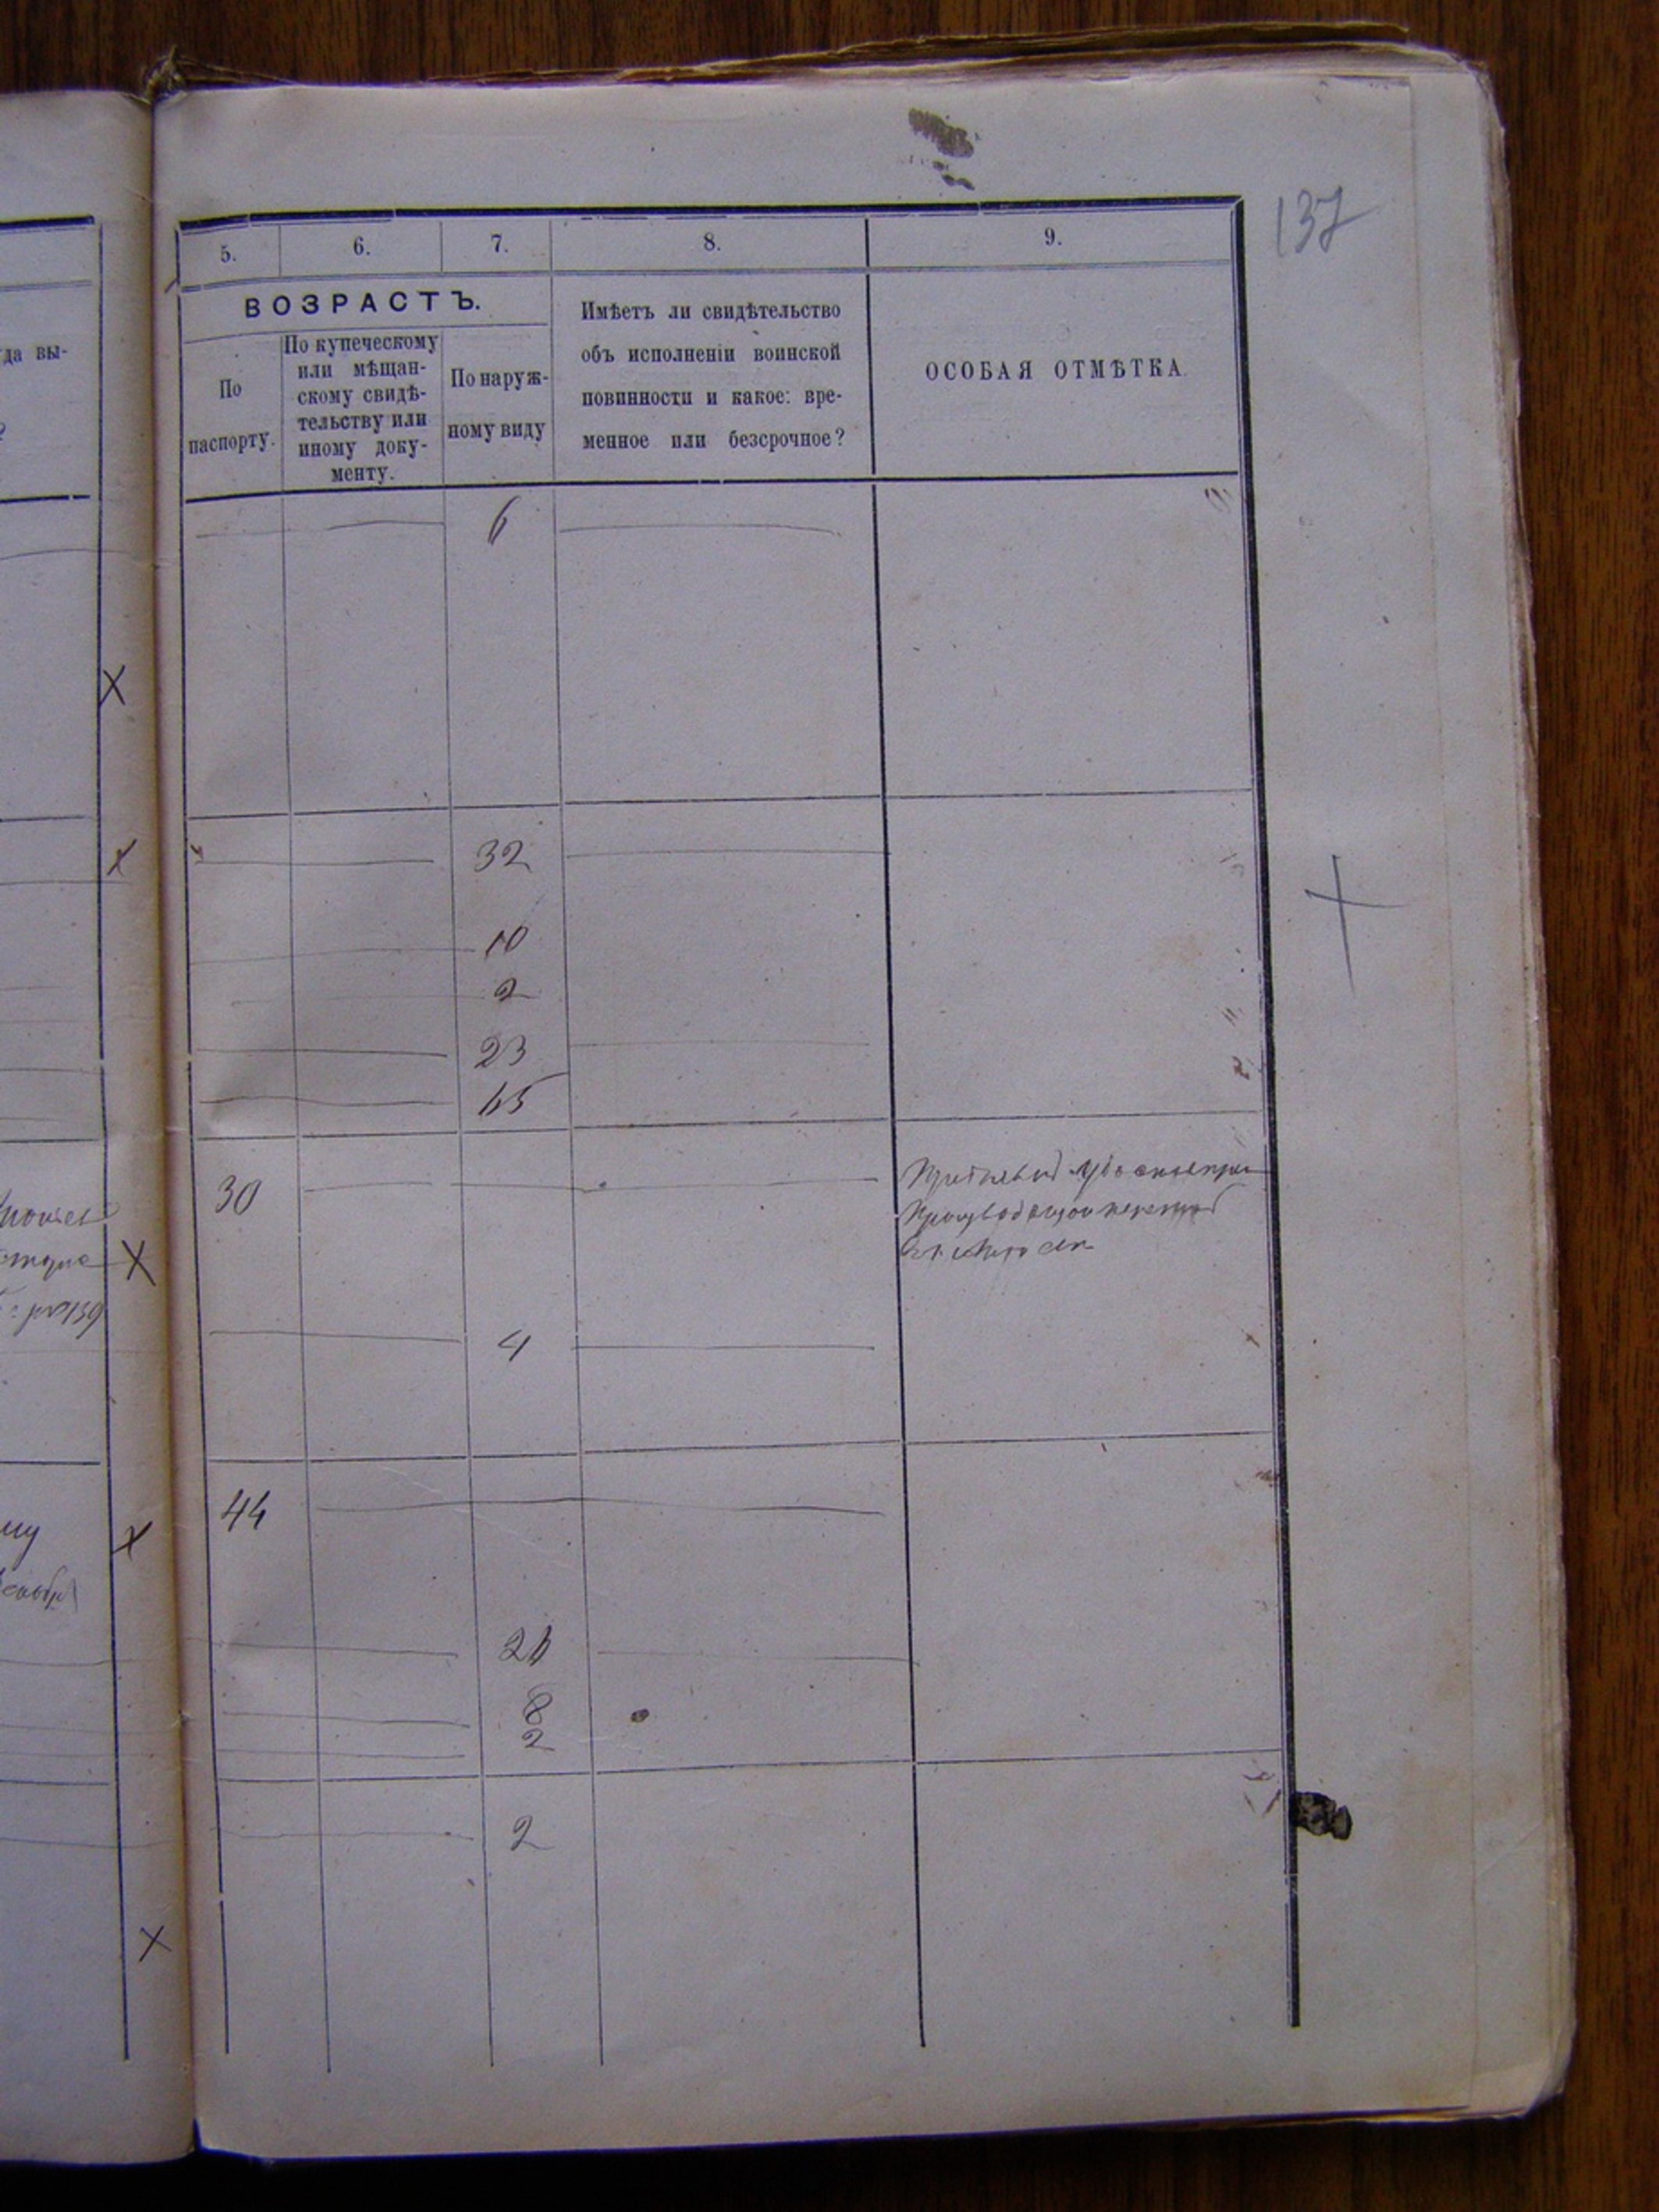 137
5. 6. 7. 8. 9.
ВОЗРАСТЪ.
По
паспорту.
По купеческому
или мѣщан-
скому свидѣ-
тельству или
иному доку-
менту.
По наруж-
ному виду
Имѣетъ ли свидѣтельство
объ исполненіи воинской
повинности и какое: вре-
менное или безсрочное?
ОСОБАЯ ОТМѢТКА.
да вы-
?
6
32
10
2
23
65
30
4
44
26
8
2
2